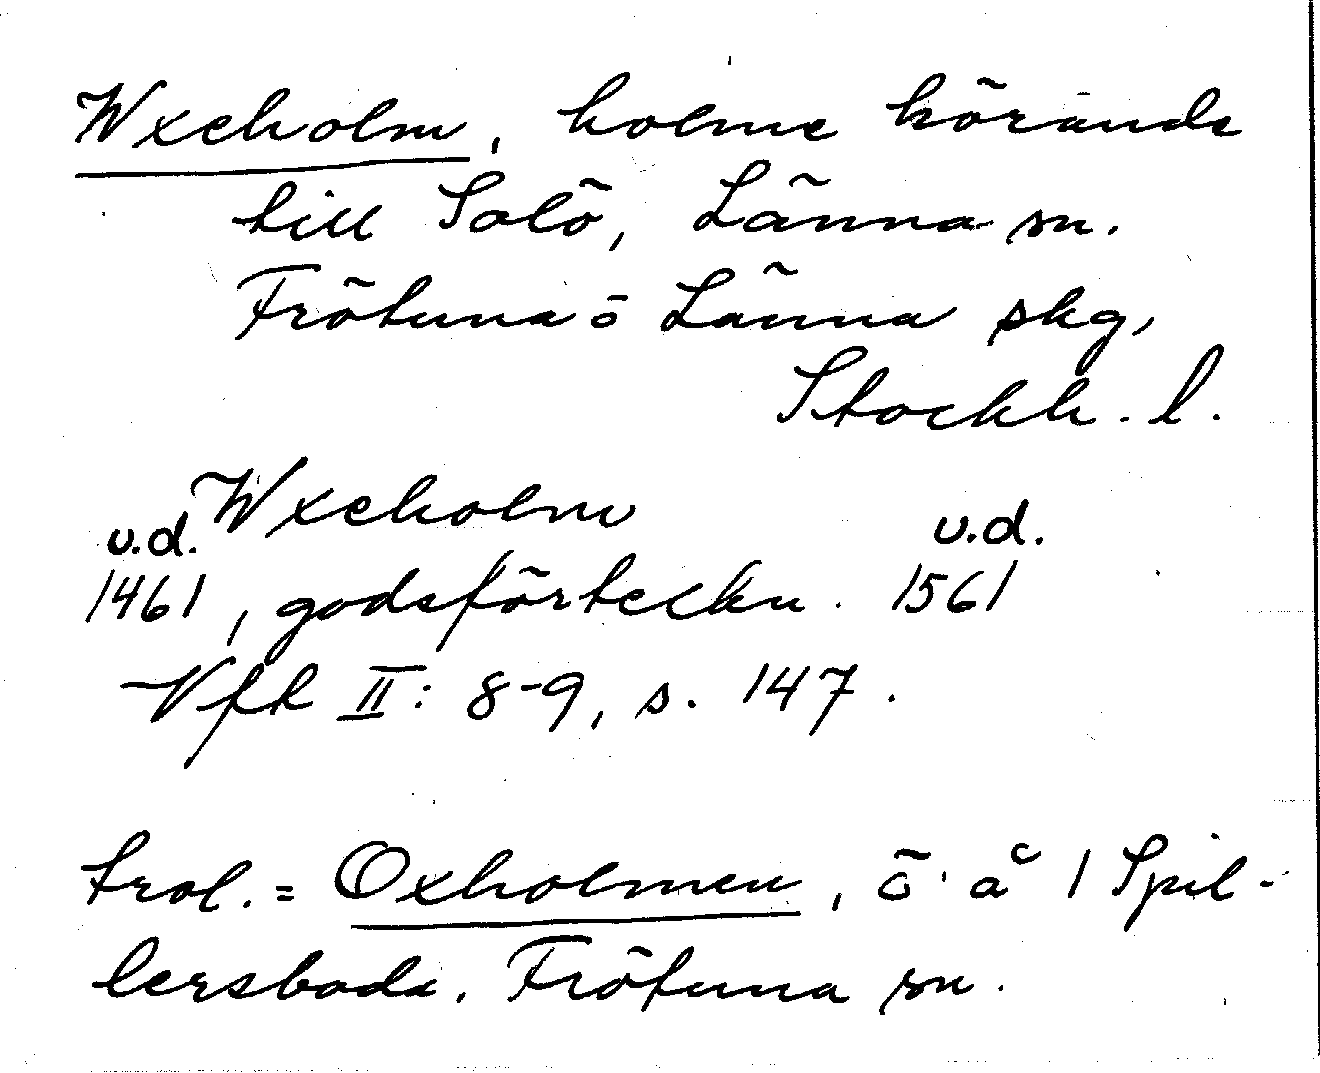 Wxeholm, holme hörande
till Solö, Länna sn.
Frötuna o Länna skg,
Stockh. l.
Wxeholm
u.d. u.d.
1461, godsförteckn. 1561
Vfk II: 8-9, s. 147.
trol. = Oxholmen, ö å 1 Spil-
lersboda, Frötuna sn.